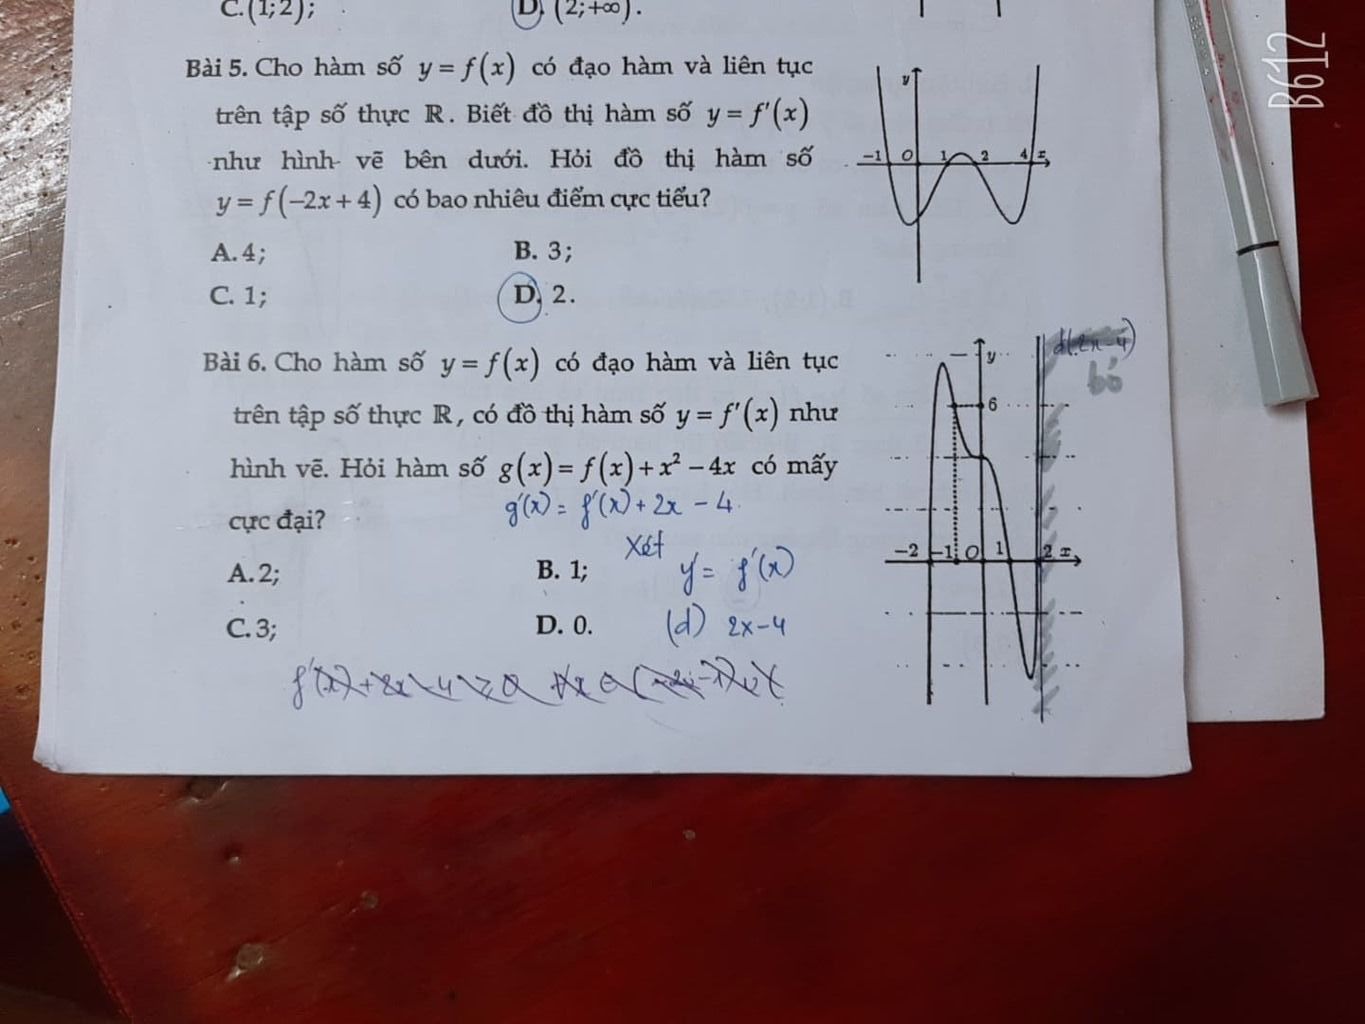 C. (1;2);
D. (2;+∞).
Bài 5. Cho hàm số y = f(x) có đạo hàm và liên tục
trên tập số thực ℝ. Biết đồ thị hàm số y = f'(x)
như hình vẽ bên dưới. Hỏi đồ thị hàm số
y = f(−2x + 4) có bao nhiêu điểm cực tiểu?
A. 4;
B. 3;
C. 1;
D. 2.
y
−1 O 1 2 4 x
Bài 6. Cho hàm số y = f(x) có đạo hàm và liên tục
trên tập số thực ℝ, có đồ thị hàm số y = f'(x) như
hình vẽ. Hỏi hàm số g(x) = f(x) + x² − 4x có mấy
cực đại?
g'(x) = f'(x) + 2x − 4
Xét
y' = f'(x)
(d) 2x − 4
A. 2;
B. 1;
C. 3;
D. 0.
y
6
−2 −1 O 1 2 x
d(2x−4)
bỏ
B612